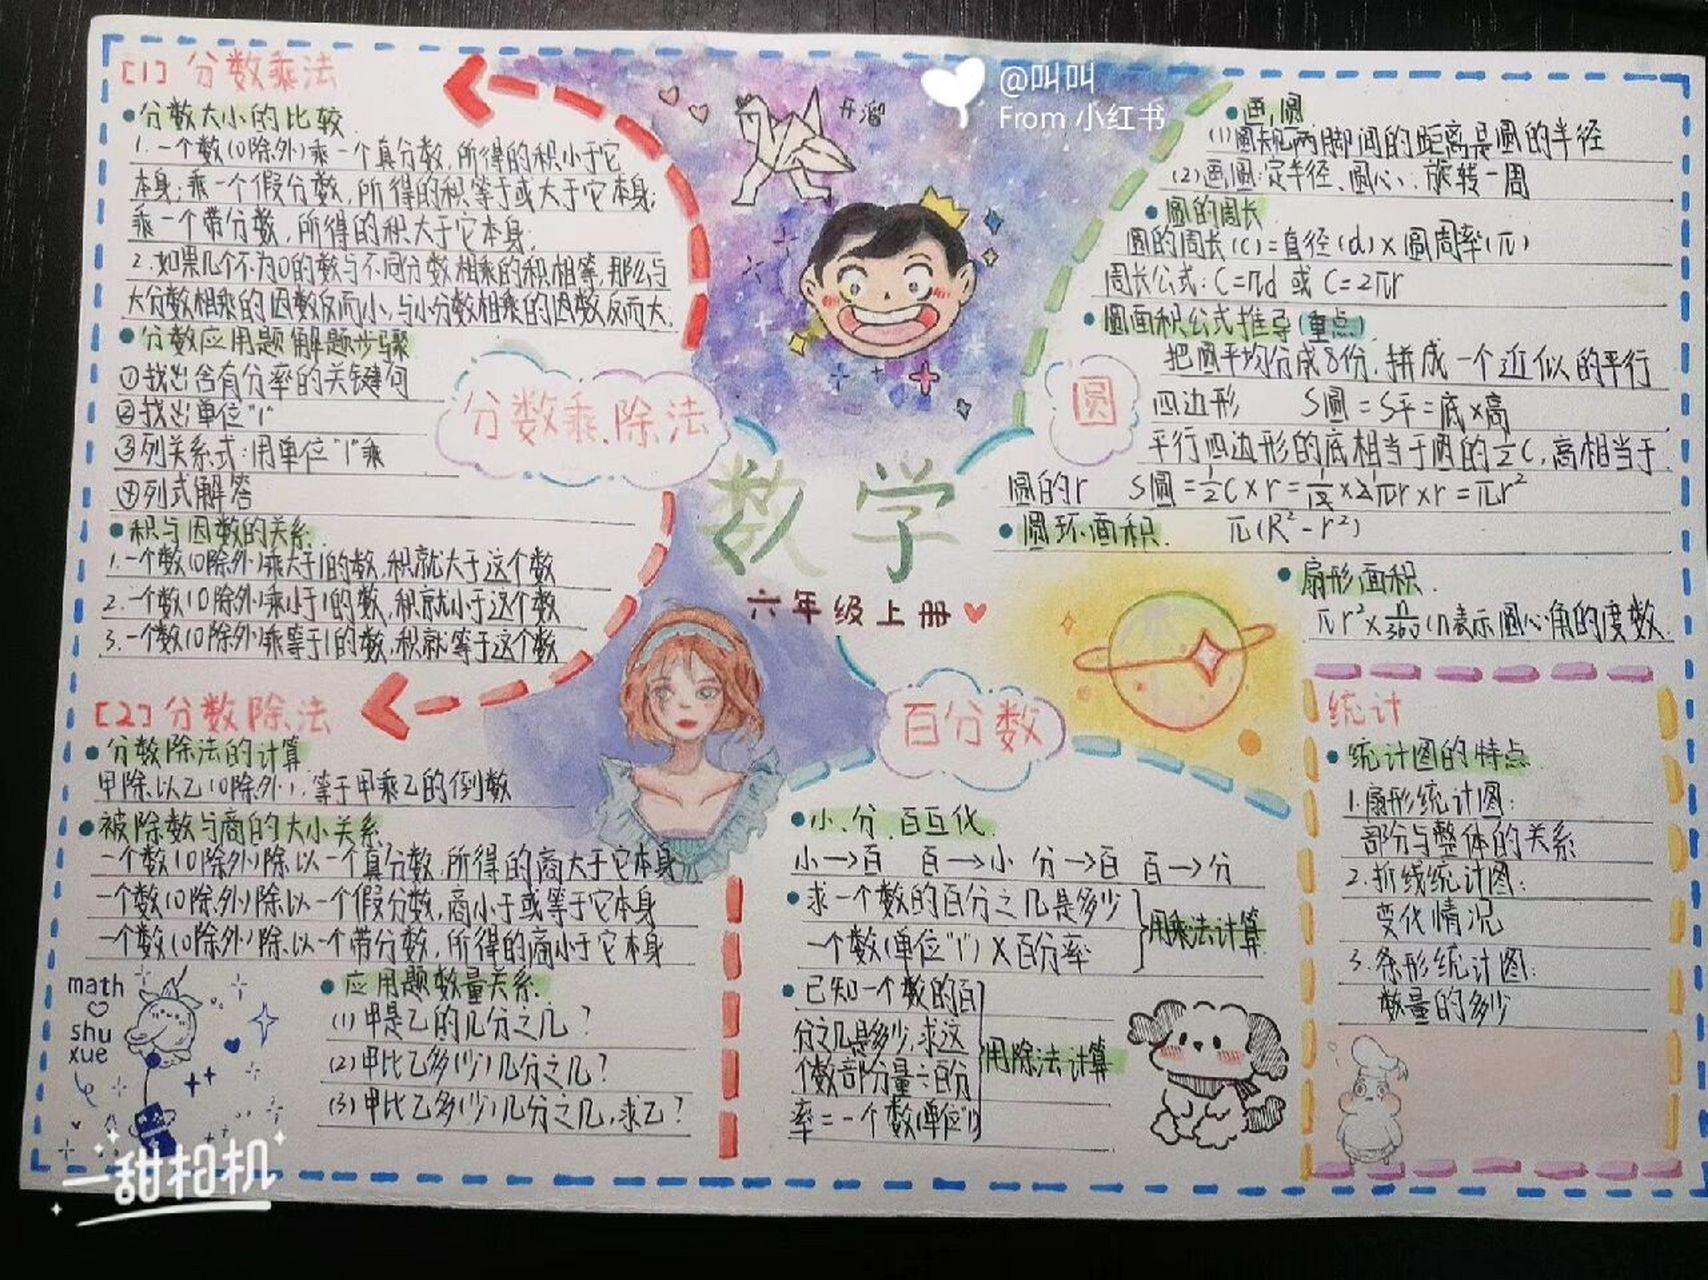 @叫叫
From 小红书
开溜
数学
六年级上册
分数乘.除法
[1] 分数乘法
分数大小的比较
1.一个数(0除外)乘一个真分数,所得的积小于它
本身;乘一个假分数,所得的积等于或大于它本身;
乘一个带分数,所得的积大于它本身.
2.如果几个不为0的数与不同分数相乘的积相等,那么与
大分数相乘的因数反而小,与小分数相乘的因数反而大.
分数应用题解题步骤
①找出含有分率的关键句
②找出单位"1"
③列关系式:用单位"1"乘
④列式解答
积与因数的关系
1.一个数(0除外)乘大于1的数,积就大于这个数
2.一个数(0除外)乘小于1的数,积就小于这个数
3.一个数(0除外)乘等于1的数,积就等于这个数
[2] 分数除法
分数除法的计算
甲除以乙(0除外),等于甲乘乙的倒数
被除数与商的大小关系
一个数(0除外)除以一个真分数,所得的商大于它本身
一个数(0除外)除以一个假分数,商小于或等于它本身
一个数(0除外)除以一个带分数,所得的商小于它本身
应用题数量关系
(1)甲是乙的几分之几?
(2)甲比乙多(少)几分之几?
(3)甲比乙多(少)几分之几,求乙?
math
shu
xue
圆
画圆
(1)圆规两脚间的距离是圆的半径
(2)画圆:定半径、圆心、旋转一周
圆的周长
圆的周长(C)=直径(d)×圆周率(π)
周长公式:C=πd 或 C=2πr
圆面积公式推导(重点)
把圆平均分成8份,拼成一个近似的平行
四边形 S圆=S平=底×高
平行四边形的底相当于圆的½C,高相当于
圆的r S圆=½C×r=½×2πr×r=πr²
圆环面积 π(R²-r²)
扇形面积.
πr²×n/360(n表示圆心角的度数
百分数
小、分、百互化.
小→百 百→小 分→百 百→分
求一个数的百分之几是多少
一个数(单位"1")×百分率
用乘法计算
已知一个数的百
分之几是多少,求这
个数部分量÷百分
率=一个数(单位"1")
用除法计算
统计
统计图的特点
1.扇形统计图:
部分与整体的关系
2.折线统计图:
变化情况
3.条形统计图:
数量的多少
一甜相机